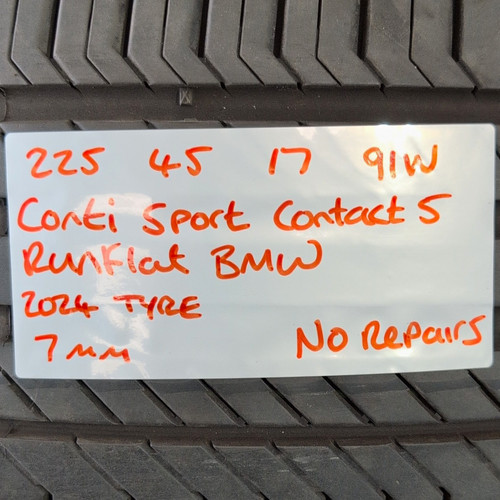 225 45 17 91W
Conti Sport Contact 5
RunFlat BMW
2024 TYRE
7mm
No Repairs